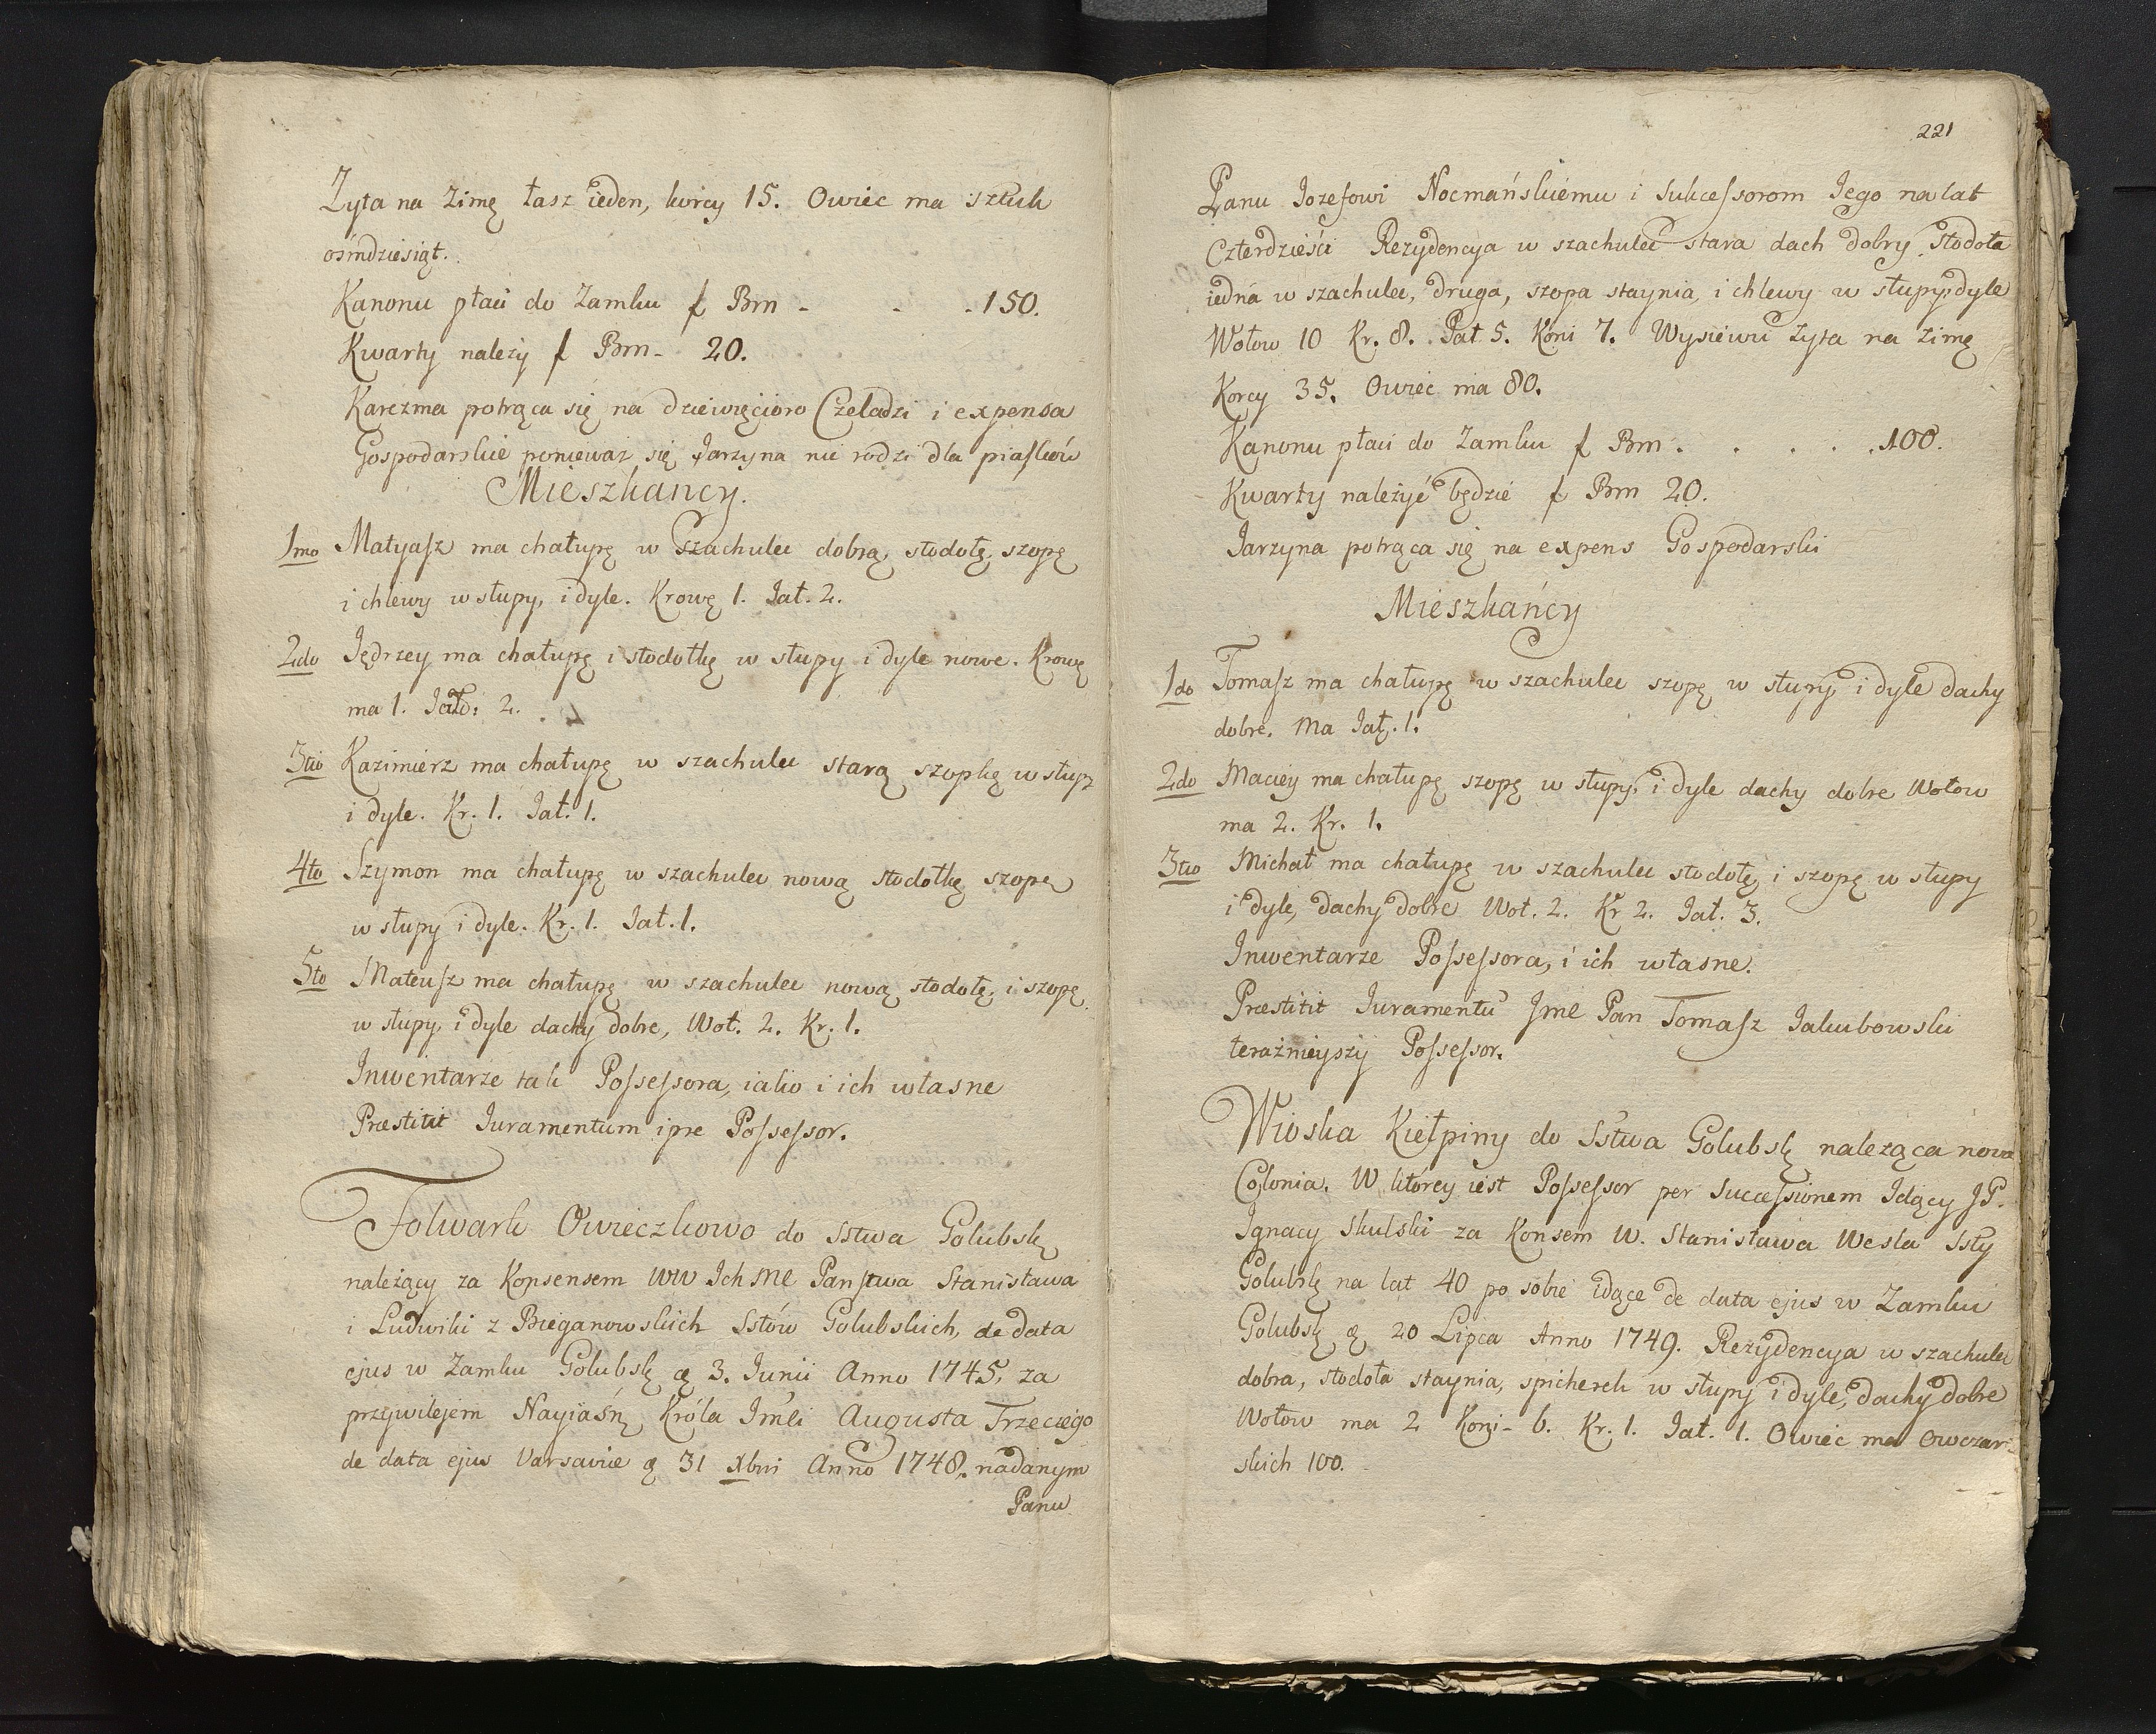 Zyta na Zimę łasz ieden, korcy 15. Owiec ma sztuk
ośmdziesiąt.
Kanonu płaci do Zamku f Brn - - - 150.
Kwarty należy f Brn - 20.
Karczma potrąca się na dziewięcioro Czeladzi i expensa
Gospodarskie ponieważ się Jarzyna nie rodzi dla piasków
Mieszkancy.
1mo Matyasz ma chałupę w szachulec dobrą, stodołę, szopę
i chlewy w słupy, i dyle. Krowę 1. Jał. 2.
2do Jędrzey ma chałupę i stodołkę w słupy i dyle nowe. Krowę
ma 1. 2.
3tio Kazimierz ma chałupę w szachulec starą szopkę w słupy
i dyle. Kr. 1. Jał. 1.
4to Szymon ma chałupę w szachulec nową stodołkę szopę
w słupy i dyle. Kr. 1. Jał. 1.
5to Mateusz ma chałupę w szachulec nową stodołę, i szopę
w słupy, i dyle dachy dobre, Woł. 2. Kr. 1.
Inwentarze tak Possessora, iako i ich własne
Præstitit Juramentum ipse Possessor.
Folwark Owieczkowo do Sstwa Golubskę
należący za Konsensem WW Ich Mc Państwa Stanisława
i Ludwiki z Bieganowskich Sstów Golubskich, de data
ejus w Zamku Golubskę 3. Junii Anno 1745. za
przywilejem Nayiaśń Króla Jmci Augusta Trzeciego
de data ejus Varsaviæ 31 Xbri Anno 1748. nadanym
Panu
221
Panu Jozefowi Nocmańskiemu i Sukcessorom Jego na lat
Czterdzieści Rezydencya w szachulec stara dach dobry. Stodoła
iedna w szachulec, druga, szopa staynia, i chlewy w słupy dyle
Wołow 10 Kr. 8. Jał. 5. Koni 7. Wysiewu Zyta na Zimę
Korcy 35. Owiec ma 80.
Kanonu płaci do Zamku f Brn . . . . . 100.
Kwarty należyć będzie f Brn 20.
Jarzyna potrąca się na expens Gospodarski
Mieszkańcy
1do Tomasz ma chałupę w szachulec szopę w słupy i dyle dachy
dobre. Ma Jał. 1.
2do Maciey ma chałupę szopę w słupy, i dyle dachy dobre Wołow
ma 2. Kr. 1.
3tio Michał ma chałupę w szachulec stodołę, i szopę w słupy
i dyle, dachy dobre Woł. 2. Kr 2. Jał. 3.
Inwentarze Possessora, i ich własne.
Præstitit Juramentu Jmc Pan Tomasz Jakubowski
teraźnieyszy Possessor.
Wioska Kiełpiny do Sstwa Golubskę należąca nowa
Colonia. W ktorey iest Possessor per Successionem Idący JP.
Ignacy Skulski za Konsem W. Stanisława Wesla Ssty
Golubskę na lat 40 po sobie idące de data ejus w Zamku
Golubskę 20 Lipca Anno 1749. Rezydencya w szachulec
dobra, stodoła staynia, spicherek w słupy i dyle, dachy dobre
Wołow ma 2 Koni - 6. Kr. 1. Jał. 1. Owiec ma Owczar-
skich 100.